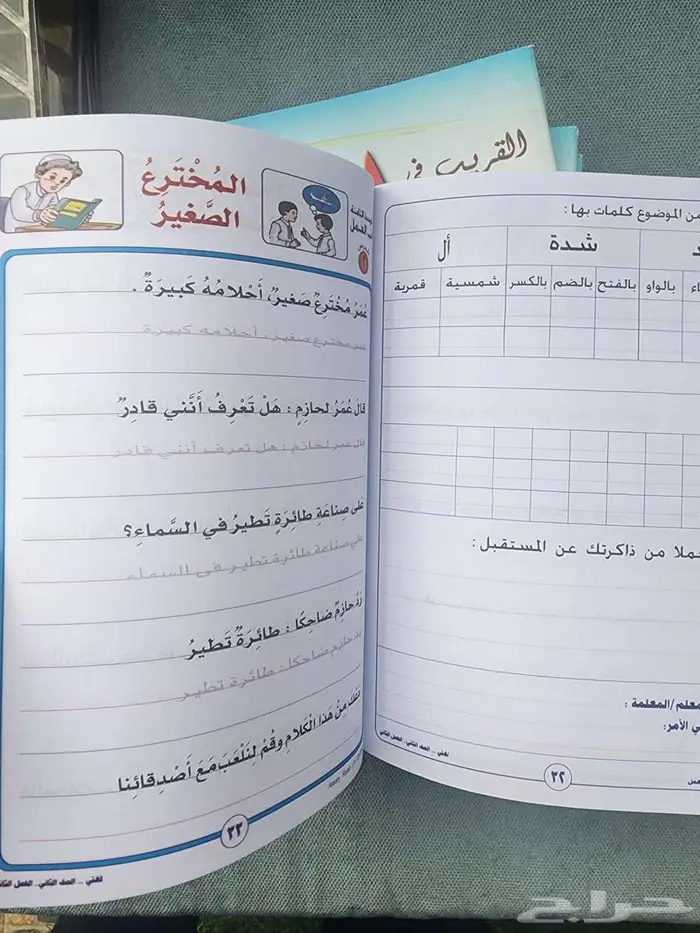 القريب في
من الموضوع كلمات بها :
شدة
أل
بالواو
بالفتح
بالضم
بالكسر
شمسية
قمرية
من ذاكرتك عن المستقبل :
المعلم/المعلمة :
الأمر:
لغتي .. الصف الثاني.. الفصل الثاني
٣٢
المُخْتَرِعُ
الصَّغيرُ
عُمَرُ مُخْتَرِعٌ صَغيرٌ، أَحْلامُهُ كَبيرَةٌ .
عمر مخترع صغير ، أحلامه كبيرة
قالَ عُمَرُ لحازِمٍ : هَلْ تَعْرِفُ أَنَّني قادِرٌ
قال عمر لحازم : هل تعرف أنني قادر
عَلى صِناعَةِ طائِرَةٍ تَطيرُ في السَّماءِ؟
على صناعة طائرة تطير في السماء
رَدَّ حازِمٌ ضاحِكًا : طائِرَةٌ تَطيرُ
رد حازم ضاحكا : طائرة تطير
مِنْ هَذا الْكَلامِ وقُمْ لِنَلْعَبَ مَعَ أَصْدِقائِنا
٣٣
لغتي .. الصف الثاني.. الفصل الثاني
حراج